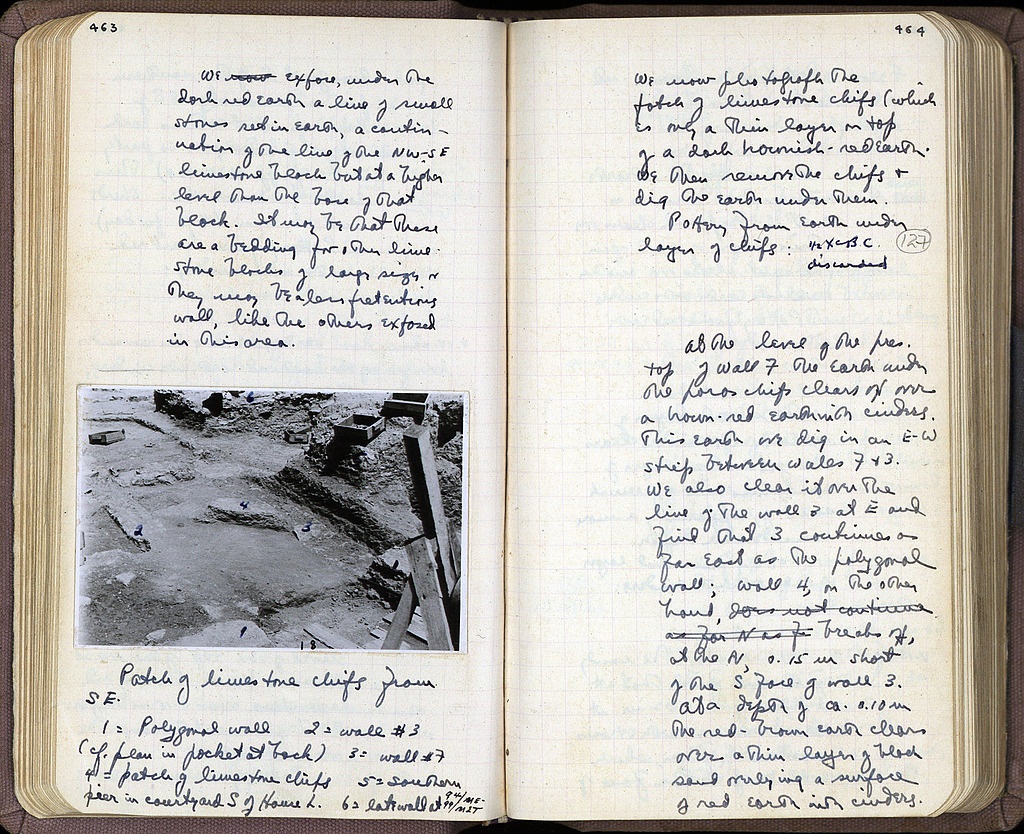 463
We now expose, under the
dark red earth a line of small
stones set in earth, a contin-
uation of the line of the NW-SE
limestone block but at a higher
level than the base of that
block. It may be that these
are a bedding for other lime-
stone blocks of large size, or
they may be a less pretentious
wall, like the others exposed
in this area.
4
2
3
1
Patch of limestone chips from
SE.
1 = Polygonal wall 2 = wall #3
(cf. plan in pocket at back) 3 = wall #7
4 = patch of limestone chips 5 = Southern
pier in courtyard S of House L. 6 = late wall at
464
We now photograph the
patch of limestone chips (which
is only a thin layer on top
of a dark brownish-red earth.
We then remove the chips +
dig the earth under them.
Pottery from earth under
layer of chips: B.C.
discarded
127
At the level of the pres.
top of wall 7 the earth under
the poros chips clears off over
a brown-red earth with cinders.
This earth we dig in an E-W
strip between walls 7 + 3.
We also clear it over the
line of the wall 3 at E and
find that 3 continues as
far East as the polygonal
wall; wall 4, on the other
hand, does not continue
as far N as breaks off,
at the N, 0.15 m short
of the S face of wall 3.
At a depth of ca. 0.10 m
the red-brown earth clears
over a thin layer of black
sand overlying a surface
of red earth with cinders.